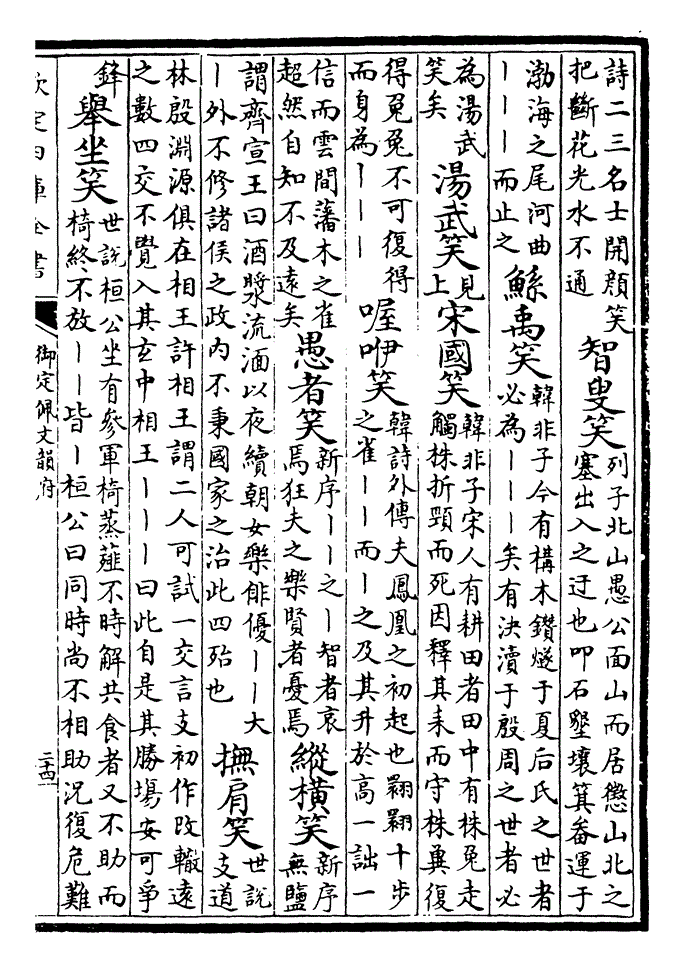 詩二三名士開顏笑
把斷花光水不通
智叟笑
列子北山愚公面山而居懲山北之
塞出入之迂也叩石墾壤箕畚運于
渤海之尾河曲
丨丨丨而止之
鯀禹笑
韓非子今有構木鑽燧于夏后氏之世者
必為丨丨丨矣有決瀆于殷周之世者必
為湯武
笑矣
湯武笑
見
上
宋國笑
韓非子宋人有耕田者田中有株兔走
觸株折頸而死因釋其耒而守株冀復
得兔兔不可復得
而身為丨丨丨
喔咿笑
韓詩外傳夫鳳凰之初起也翾翾十步
之雀丨丨而丨之及其升於高一詘一
信而雲間藩木之雀
超然自知不及遠矣
愚者笑
新序丨丨之丨智者哀
焉狂夫之樂賢者憂焉
縱橫笑
新序
無鹽
謂齊宣王曰酒漿流湎以夜續朝女樂俳優丨丨大
丨外不修諸侯之政內不秉國家之治此四殆也
撫肩笑
世說
支道
林殷淵源俱在相王許相王謂二人可試一交言支初作改轍遠
之數四交不覺入其玄中相王丨丨丨曰此自是其勝場安可爭
鋒
舉坐笑
世說桓公坐有參軍椅蒸薤不時解共食者又不助而
椅終不放丨丨皆丨桓公曰同時尚不相助況復危難
欽定四庫全書
御定佩文韻府
二十四